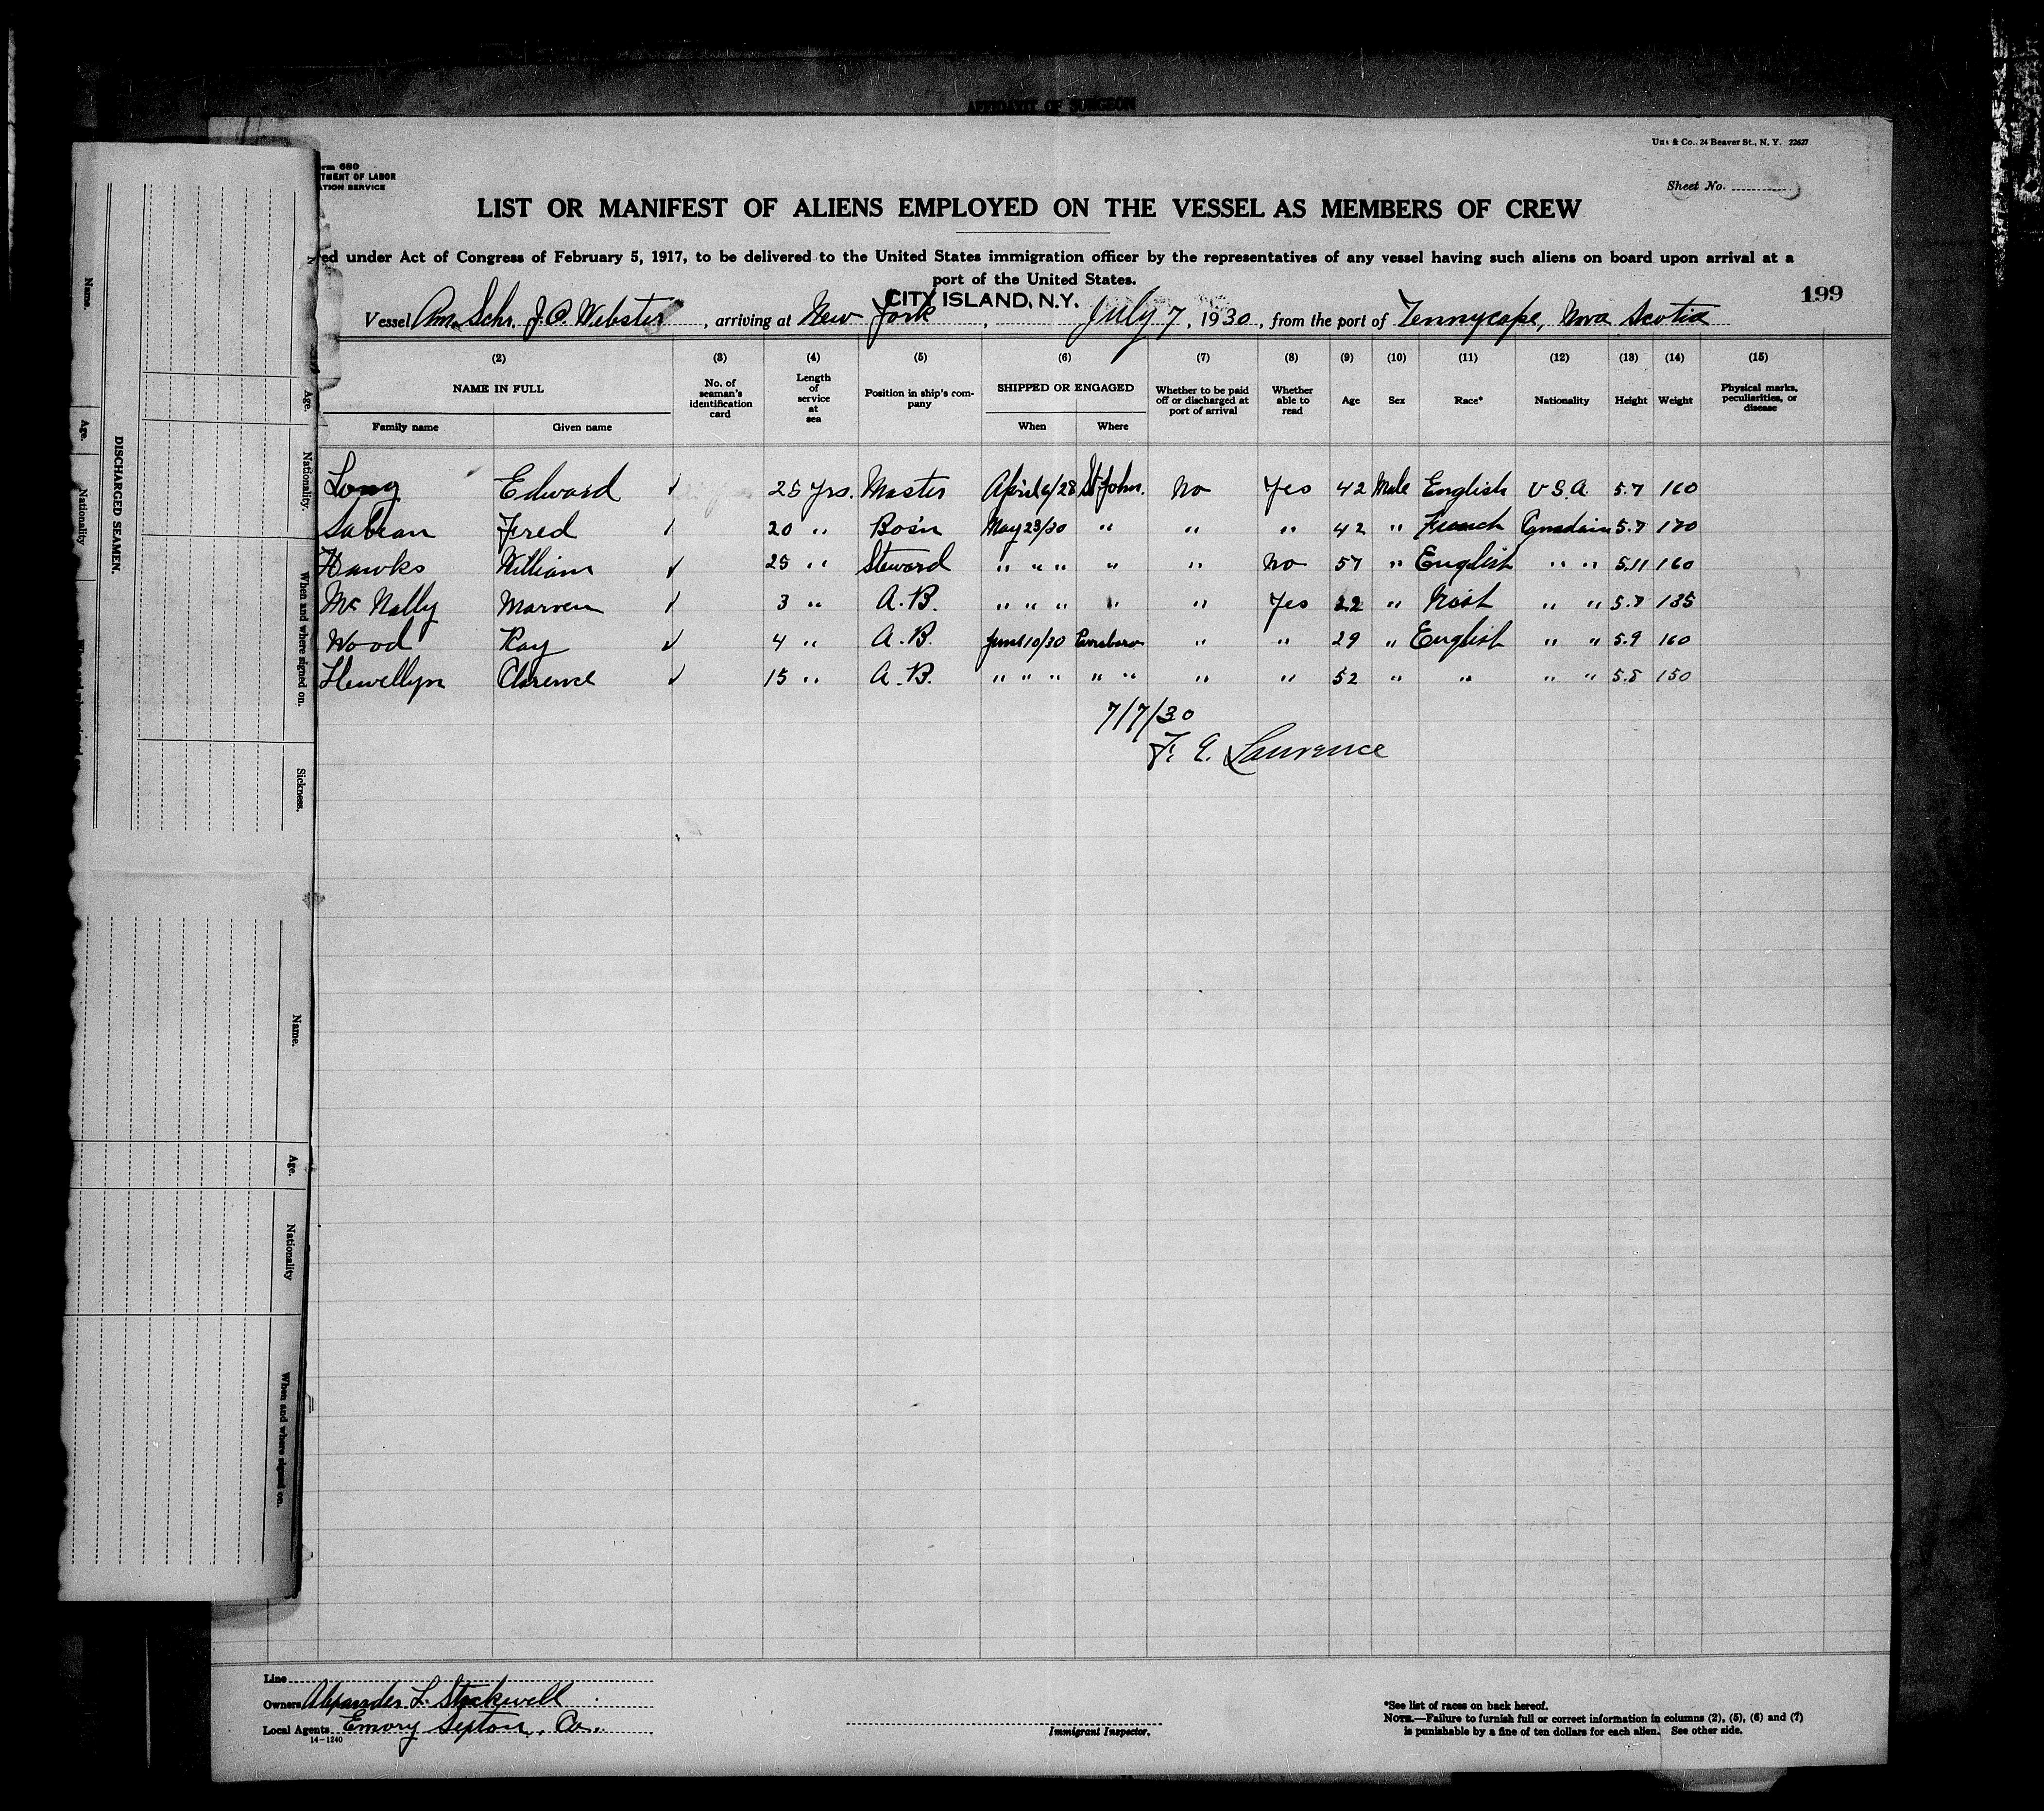 AFFIDAVIT OF SURGEON
Form 680
TMENT OF LABOR
ATION SERVICE
& Co., 24 Beaver St., N. Y. 22627
Sheet No.
LIST OR MANIFEST OF ALIENS EMPLOYED ON THE VESSEL AS MEMBERS OF CREW
ed under Act of Congress of February 5, 1917, to be delivered to the United States immigration officer by the representatives of any vessel having such aliens on board upon arrival at a
port of the United States.
CITY ISLAND, N.Y.
199
Vessel Am. Schr. J.O. Webster, arriving at New York, July 7, 1930, from the port of Tennycape, Nova Scotia
(2) (3) (4) (5) (6) (7) (8) (9) (10) (11) (12) (13) (14) (15)
NAME IN FULL No. of seaman's identification card Length of service at sea Position in ship's company SHIPPED OR ENGAGED Whether to be paid off or discharged at port of arrival Whether able to read Age Sex Race* Nationality Height Weight Physical marks, peculiarities, or disease
Family name Given name When Where
Long Edward ✓ 25 yrs. Master April 6/28 St John. No Yes 42 Male English U.S.A. 5.7 160
Sabean Fred 20 " Bos'n May 23/30 " " " 42 " French Canadain 5.7 170
Hawks William ✓ 25 " Steward " " " " " No 57 " English " " 5.11 160
Mc Nally Marven ✓ 3 " A.B. " " " " " Yes 22 " Irish " " 5.7 135
Wood Ray ✓ 4 " A.B. June 10/30 " " 29 " English " " 5.9 160
Llewellyn Clarence ✓ 15 " A.B. " " " " " " " 52 " " " " 5.8 150
7/7/30
F. E. Laurence
Line
Owners Alexander L. Stockwell
Local Agents Emory Sexton. Co.
14-1240
Immigrant Inspector.
*See list of races on back hereof.
NOTE.—Failure to furnish full or correct information in columns (2), (5), (6) and (7)
is punishable by a fine of ten dollars for each alien. See other side.
DISCHARGED SEAMEN.
Name.
Age.
Nationality
Age.
Nationality.
When and where signed on.
Sickness.
Name.
Age.
Nationality
When and where signed on.